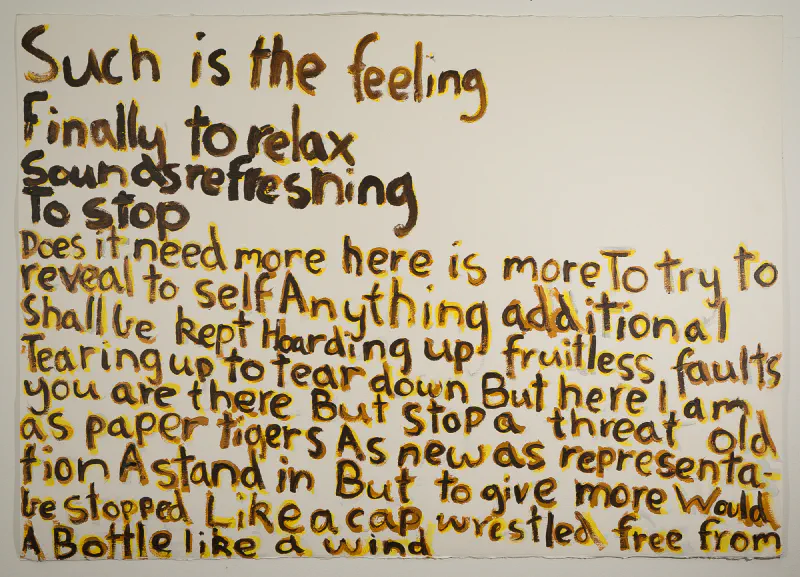 Such is the feeling
Finally to relax
Sounds refreshing
To stop
Does it need more here is more To try to
reveal to self Anything additional
Shall be kept Hoarding up fruitless faults
Tearing up to tear down But here I am
you are there But Stop a threat old
as paper tigers As new as representa-
tion A stand in But to give more Would
be Stopped Like a cap wrestled free from
A Bottle like a wind